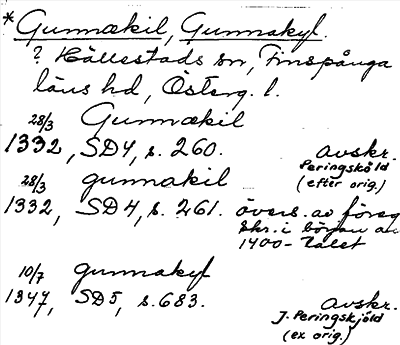 *Gunnækil, Gunnakyl.
? Hällestads sn, Finspånga
läns hd, Österg. l.
28/3 Gunnækil
1332, SD4, s. 260. avskr.
Peringsköld
(efter orig.)
28/3 gunnakil
1332, SD4, s. 261. övers. av föreg
skr. i början av
1400-talet
10/7 gunnakyl
1347, SD5, s. 683. avskr.
J. Peringskjöld
(ex orig.)